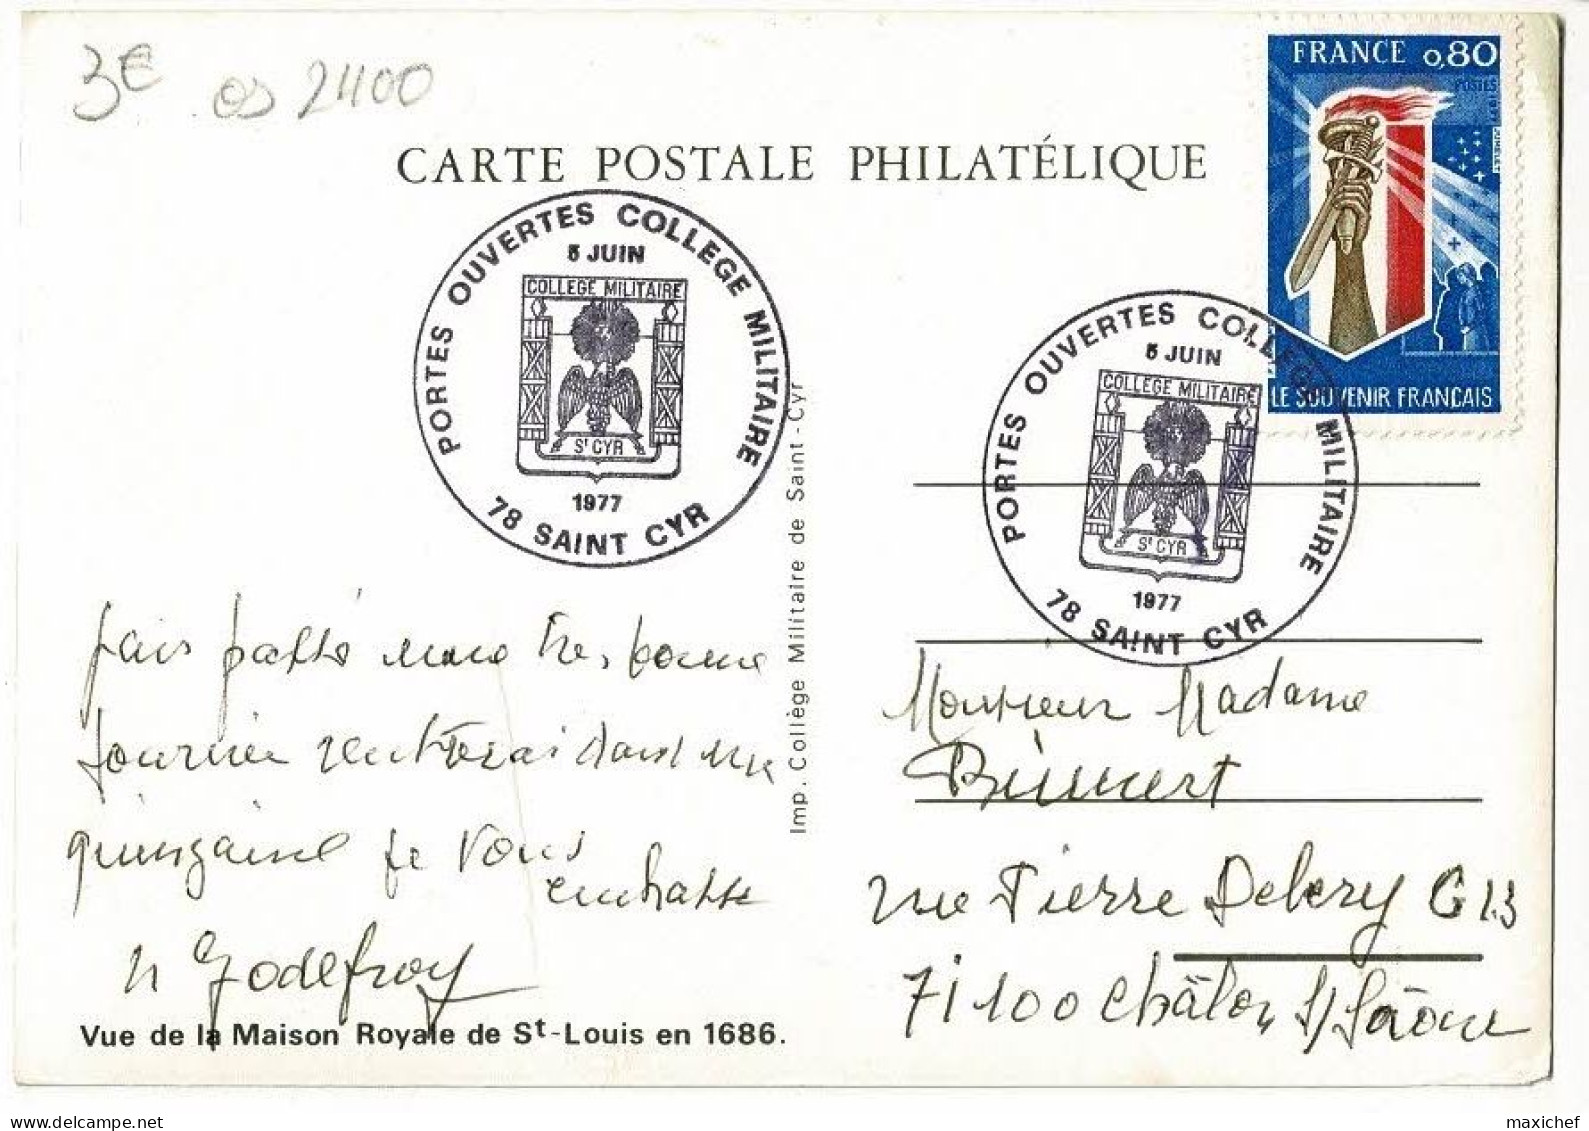 3€ OS 2400
CARTE POSTALE PHILATÉLIQUE
FRANCE 0,80
POSTES 1977
LE SOUVENIR FRANÇAIS
PORTES OUVERTES COLLEGE MILITAIRE
5 JUIN
COLLEGE MILITAIRE
St CYR
1977
78 SAINT CYR
PORTES OUVERTES COLLEGE MILITAIRE
5 JUIN
COLLEGE MILITAIRE
St CYR
1977
78 SAINT CYR
passé une très bonne
journée rentrerai dans une
quinzaine je vous
embrasse
Godefroy
Vue de la Maison Royale de St-Louis en 1686.
Imp. Collège Militaire de Saint-Cyr
Monsieur Madame
rue Pierre Delery C 13
71100 Châlon s/ Saône
maxichef